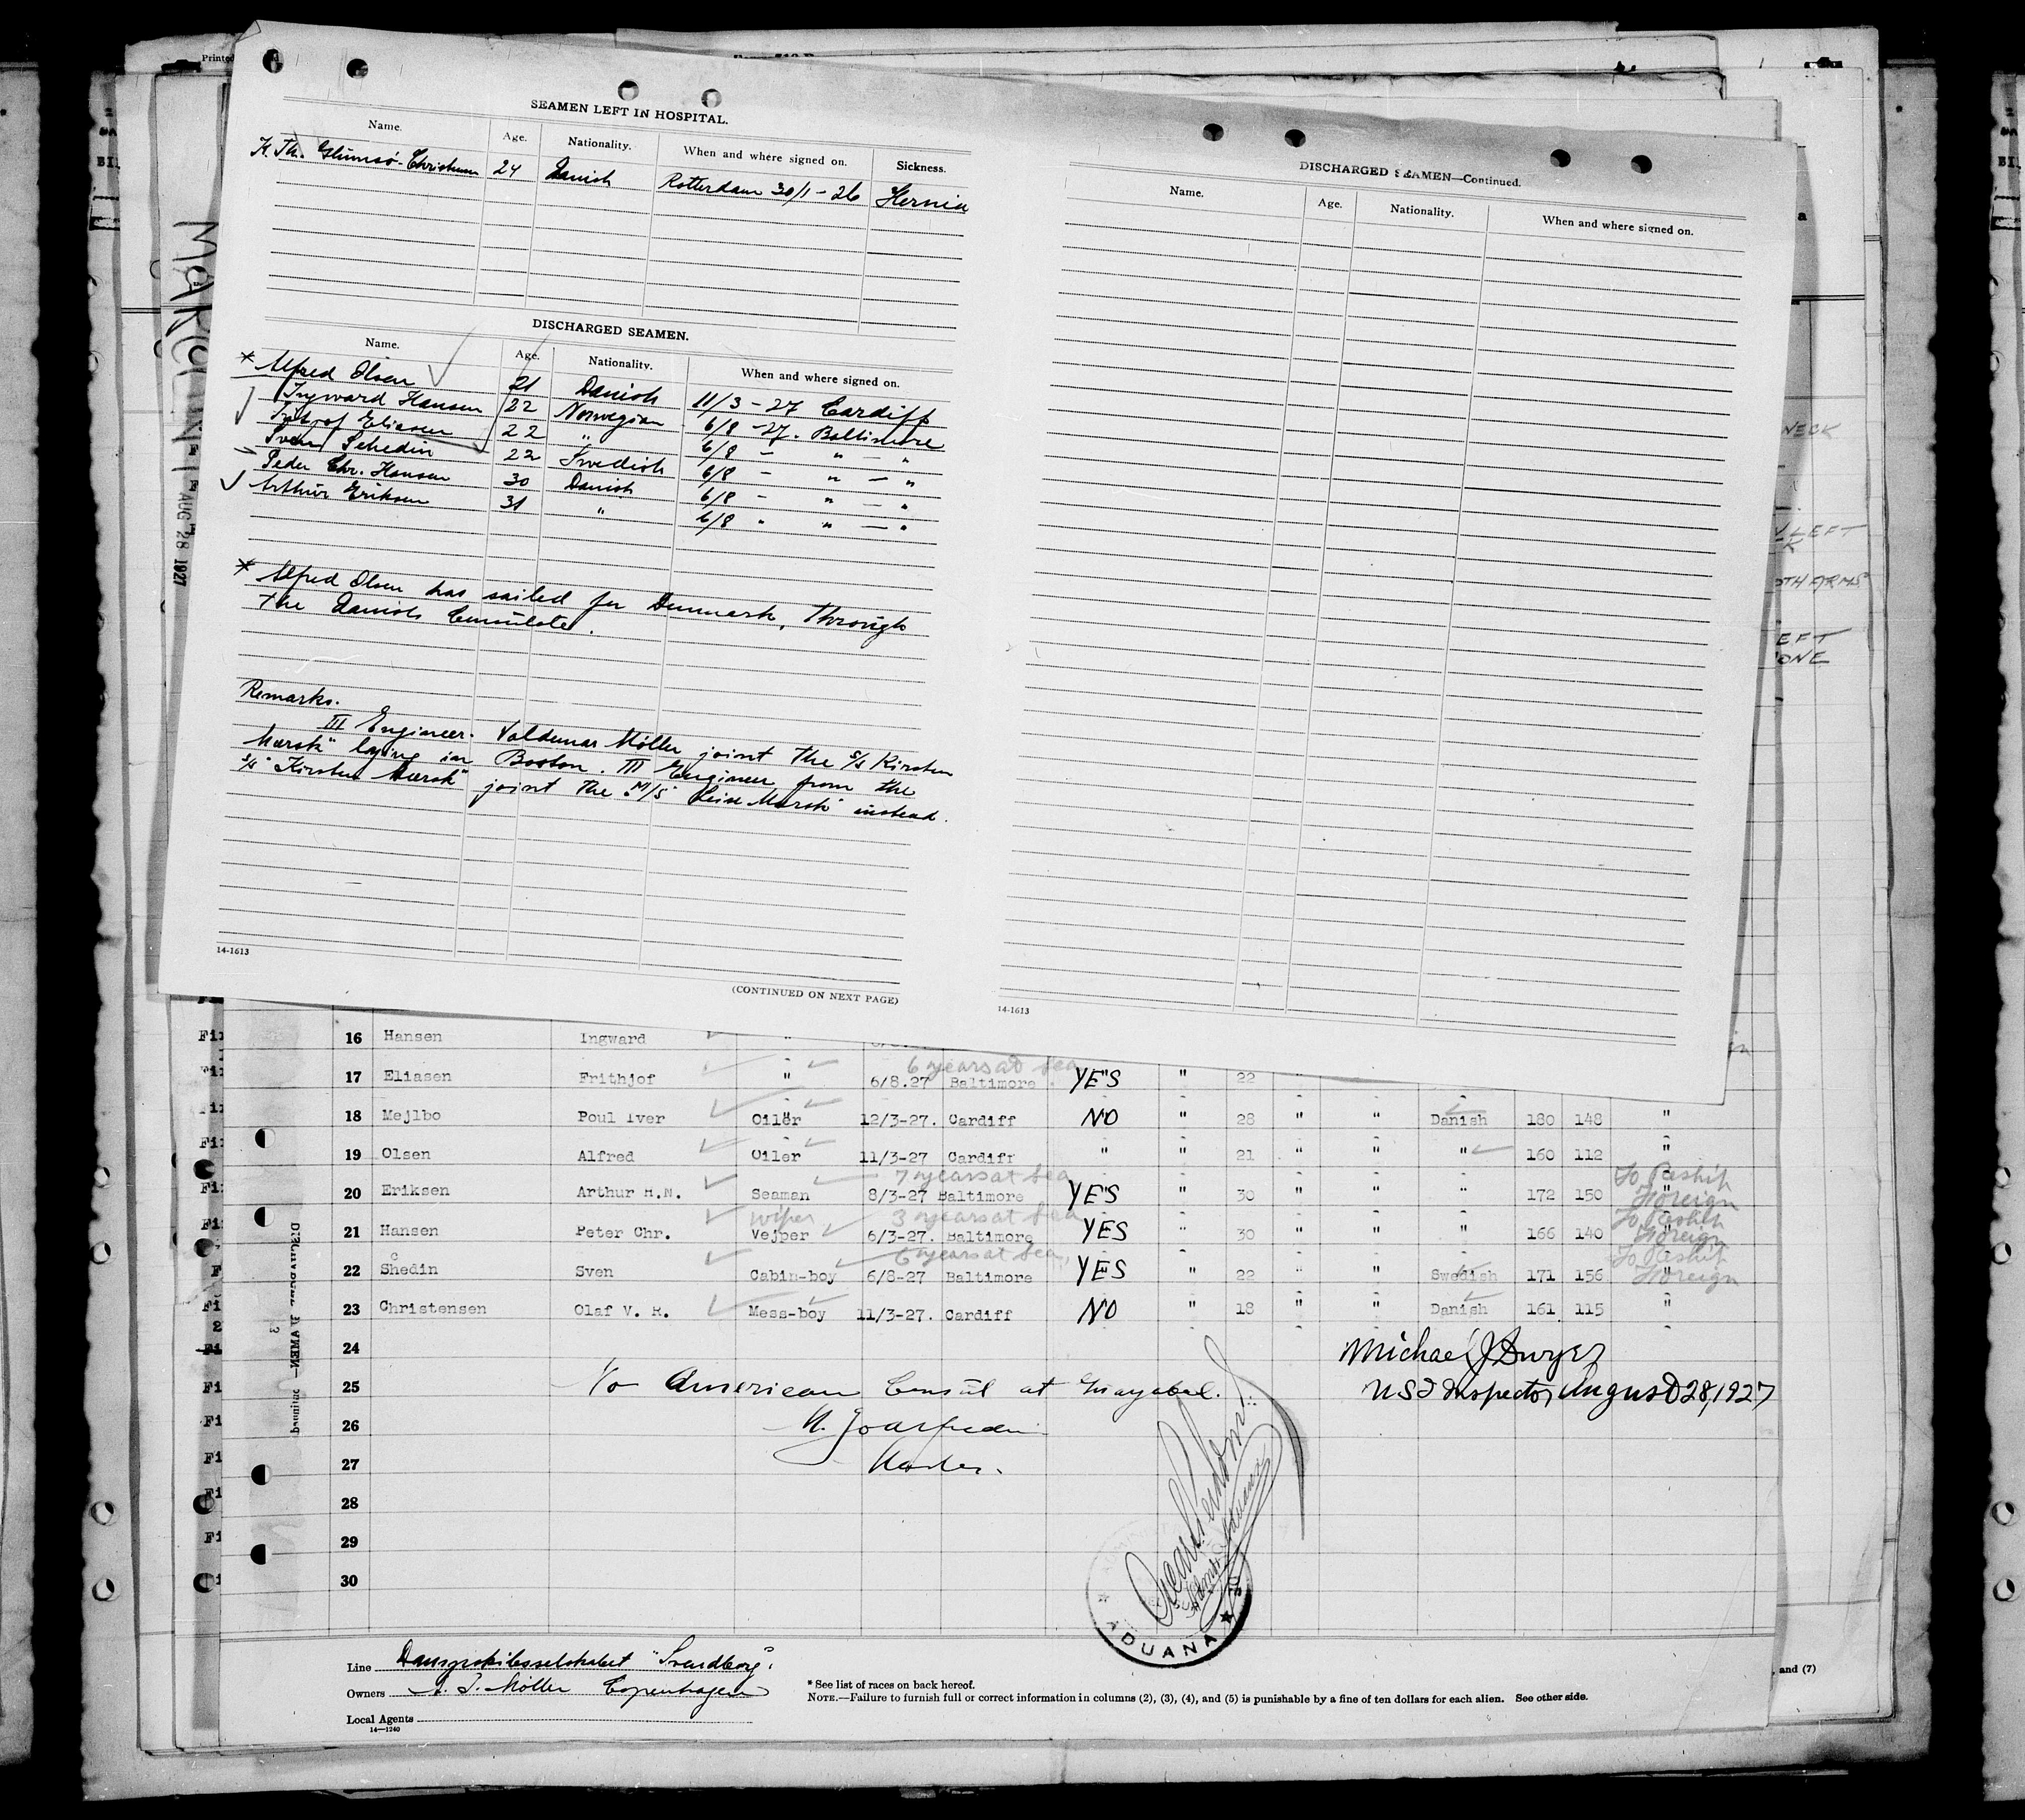 Printed
SEAMEN LEFT IN HOSPITAL.
Name. Age. Nationality. When and where signed on. Sickness.
K. Th. Glumsö-Christensen 24 Danish Rotterdam 30/1-26 Hernia
DISCHARGED SEAMEN.
Name. Age. Nationality. When and where signed on.
* Alfred Olsen 21 Danish 11/3-27 Cardiff
Ingward Hansen 22 Norwegian 6/8-27. Baltimore
Fritjof Eliasen 22 " 6/8 - " - "
Sven Schedin 22 Swedish 6/8 - " - "
Peder Chr. Hansen 30 Danish 6/8 - " - "
Arthur Eriksen 31 " 6/8 " " - "
* Alfred Olsen has sailed for Denmark, through
the Danish Consulate.
Remarks.
III Engineer. Valdemar Möller joint the S/S Kirsten
Mærsk" laying in Boston. III Engineer from the
S/S "Kirsten Mærsk" joint the M/S "Leise Mærsk" instead.
14-1613
(CONTINUED ON NEXT PAGE)
DISCHARGED SEAMEN—Continued.
Name. Age. Nationality. When and where signed on.
14-1613
AUG 28 1927
NECK
LEFT
BOTH ARMS
LEFT
16 Hansen Ingward "
6 years at sea
17 Eliasen Frithjof " 6/8.27 Baltimore YES " 22 "
18 Mejlbo Poul Iver Oiler 12/3-27. Cardiff NO " 28 " " Danish 180 148 "
19 Olsen Alfred Oiler 11/3-27 Cardiff " " 21 " " " 160 112 "
7 years at sea To Reship
20 Eriksen Arthur H.N. Seaman 8/3-27 Baltimore YES " 30 " " " 172 150 " Foreign
wiper 3 years at sea To Reship
21 Hansen Peter Chr. Vejper 6/3-27. Baltimore YES " 30 " " " 166 140 " Foreign
6 years at sea, To Reship
22 Shedin Sven Cabin-boy 6/8-27 Baltimore YES " 22 " " Swedish 171 156 " Foreign
23 Christensen Olaf V. R. Mess-boy 11/3-27. Cardiff NO " 18 " " Danish 161 115 "
24 Michael J Dwyer
25 To American Consul at Guayabal. U S I Inspector August 28, 1927
26
27 Master.
28
29
30
ADUANA
Line Dampskibsselskabet "Svendborg".
Owners A. P. Möller Copenhagen
Local Agents
14—1240
* See list of races on back hereof.
NOTE.—Failure to furnish full or correct information in columns (2), (3), (4), and (5) is punishable by a fine of ten dollars for each alien. See other side.
, and (7)